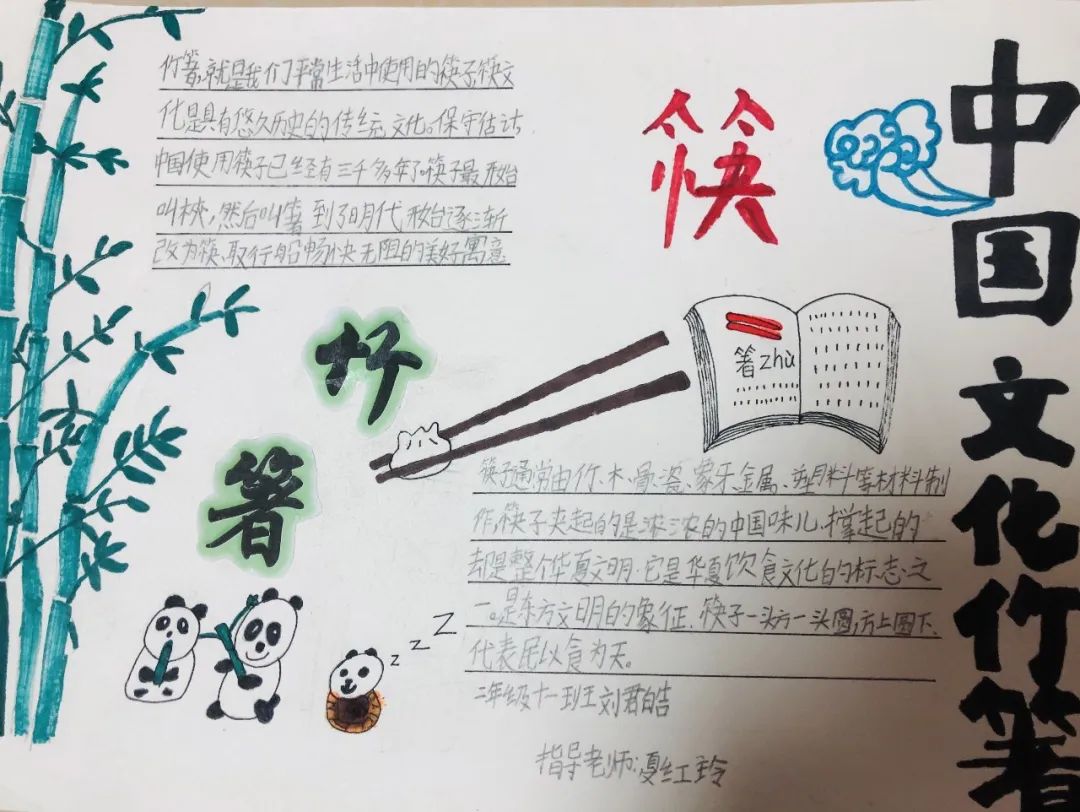 中国文化竹箸
筷
竹箸,就是我们平常生活中使用的筷子,筷文
化是具有悠久历史的传统文化。保守估计,
中国使用筷子已经有三千多年了。筷子最开始
叫梜,然后叫箸,到了明代,开始逐渐
改为筷,取行船畅快无阻的美好寓意
竹
箸
箸zhù
筷子通常由竹、木、骨、瓷、象牙、金属、塑料等材料制
作,筷子夹起的是浓浓的中国味儿,撑起的
却是整个华夏文明。它是华夏饮食文化的标志之
一。是东方文明的象征。筷子一头方一头圆,方上圆下,
代表民以食为天。
z z Z
二年级十一班王刘君皓
指导老师:夏红玲